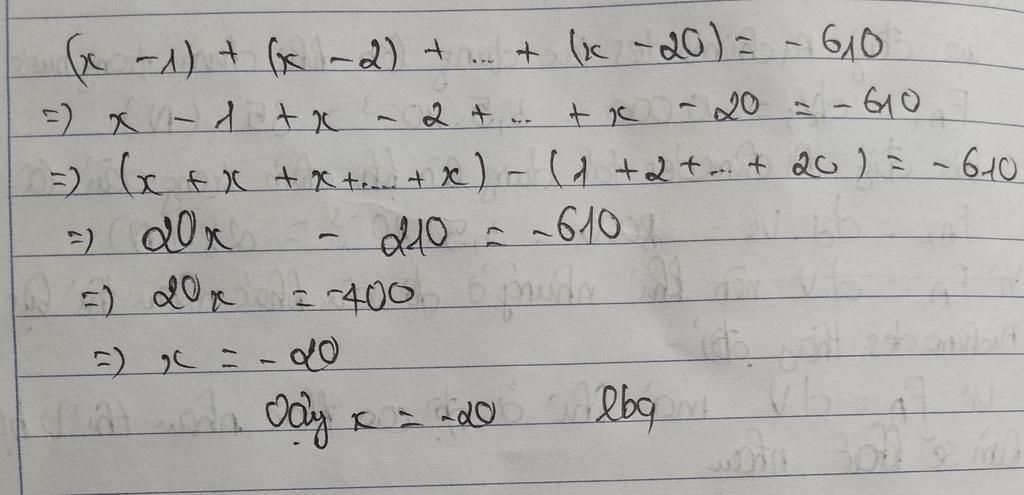 (x - 1) + (x - 2) + ... + (x - 20) = - 610
=) x - 1 + x - 2 + ... + x - 20 = - 610
=) (x + x + x + .... + x) - (1 + 2 + ... + 20) = - 610
=) 20x - 210 = - 610
=) 20x = - 400
=) x = - 20
Vậy x = - 20